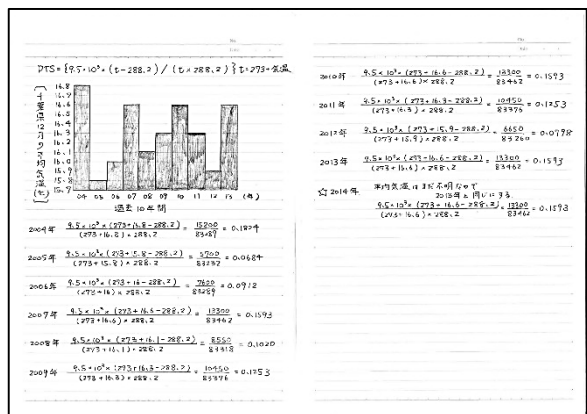 No.
Date
DTS={9.5×10³×(t-288.2)/(t×288.2)} t=273+気温
平均気温(℃)
16.8
16.7
16.6
16.5
16.4
16.3
16.2
16.1
16.0
15.9
15.8
15.7
04 05 06 07 08 09 10 11 12 13 (年)
過去10年間
2004年 9.5×10³×(273+16.8-288.2)/(273+16.8)×288.2 = 15200/ = 0.1824
2005年 9.5×10³×(273+15.8-288.2)/(273+15.8)×288.2 = 5700/83232 = 0.0684
2006年 9.5×10³×(273+16-288.2)/(273+16)×288.2 = 7600/83289 = 0.0912
2007年 9.5×10³×(273+16.6-288.2)/(273+16.6)×288.2 = 13300/83462 = 0.1593
2008年 9.5×10³×(273+16.1-288.2)/(273+16.1)×288.2 = 8550/83318 = 0.1020
2009年 9.5×10³×(273+16.3-288.2)/(273+16.3)×288.2 = 10450/83376 = 0.1253
No.
Date
2010年 9.5×10³×(273+16.6-288.2)/(273+16.6)×288.2 = 13300/83462 = 0.1593
2011年 9.5×10³×(273+16.3-288.2)/(273+16.3)×288.2 = 10450/83376 = 0.1253
2012年 9.5×10³×(273+15.9-288.2)/(273+15.9)×288.2 = 6650/83260 = 0.0798
2013年 9.5×10³×(273+16.6-288.2)/(273+16.6)×288.2 = 13300/83462 = 0.1593
☆2014年 平均気温はまだ不明なので
2013年と同じにする。
9.5×10³×(273+16.6-288.2)/(273+16.6)×288.2 = 13300/83462 = 0.1593